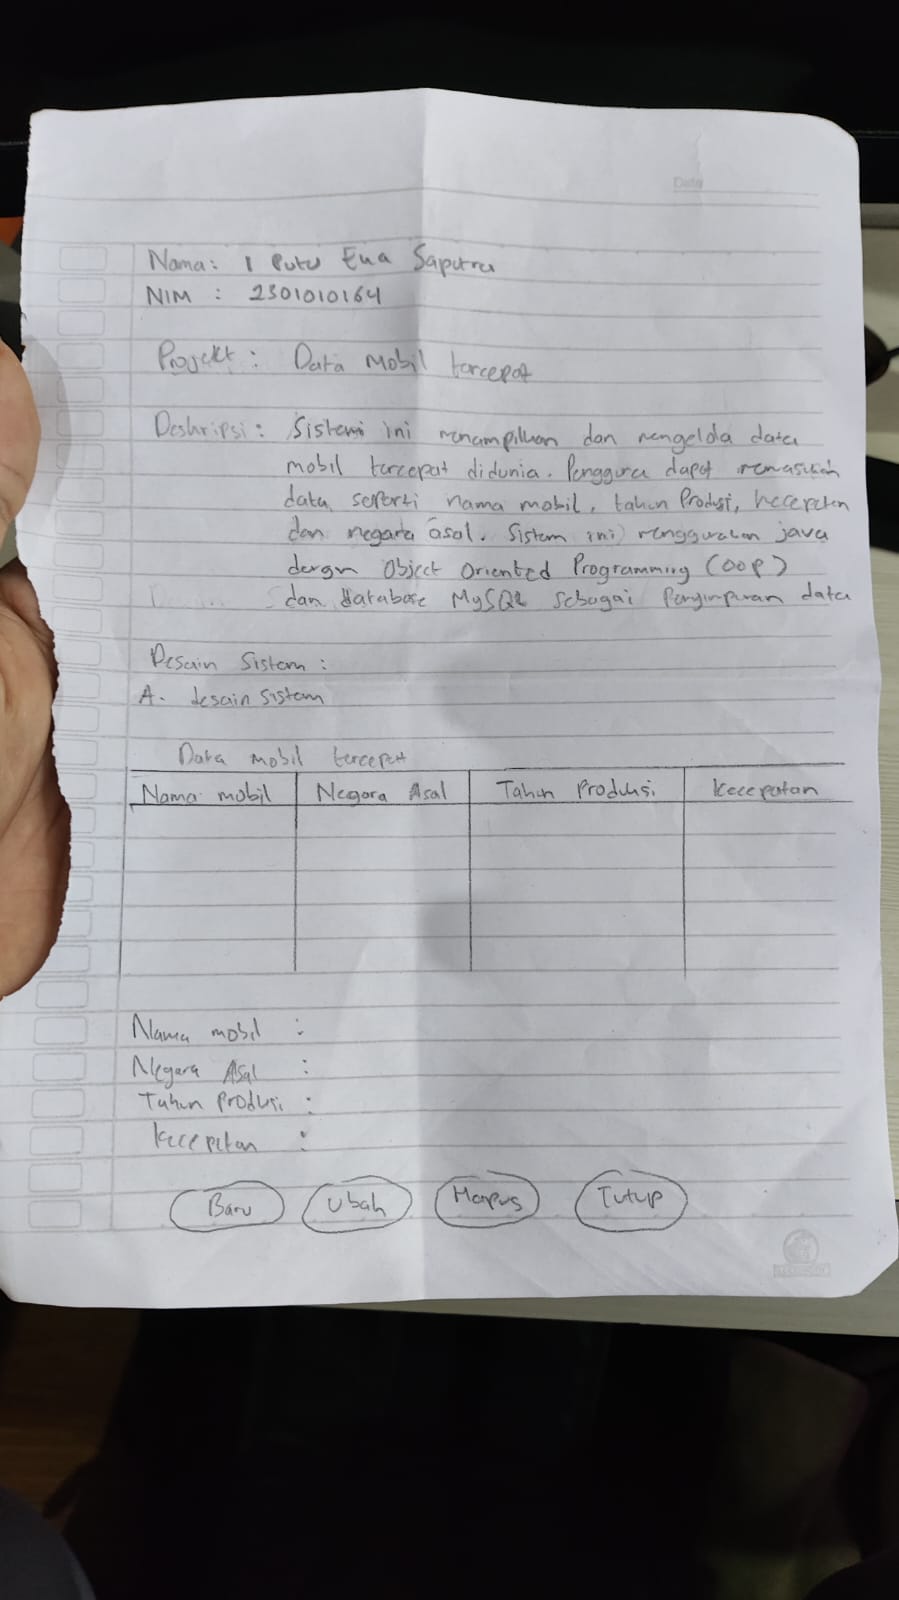 Date
Nama: I Putu Eka Saputra
NIM : 2301010164
Projekt : Data Mobil tercepat
Deskripsi : Sistem ini menampilkan dan mengelola data
mobil tercepat didunia. Pengguna dapat memasukan
data seperti nama mobil, tahun Produksi, kecepatan
dan negara asal. Sistem ini menggunakan java
dengan Object Oriented Programming (OOP)
dan database MySQL sebagai Penyimpanan data
Desain Sistem :
A. desain sistem
Data mobil tercepat
Nama mobil Negara Asal Tahun Produksi Kecepatan
Nama mobil :
Negara Asal :
Tahun Produksi :
Kecepatan :
Baru Ubah Hapus Tutup